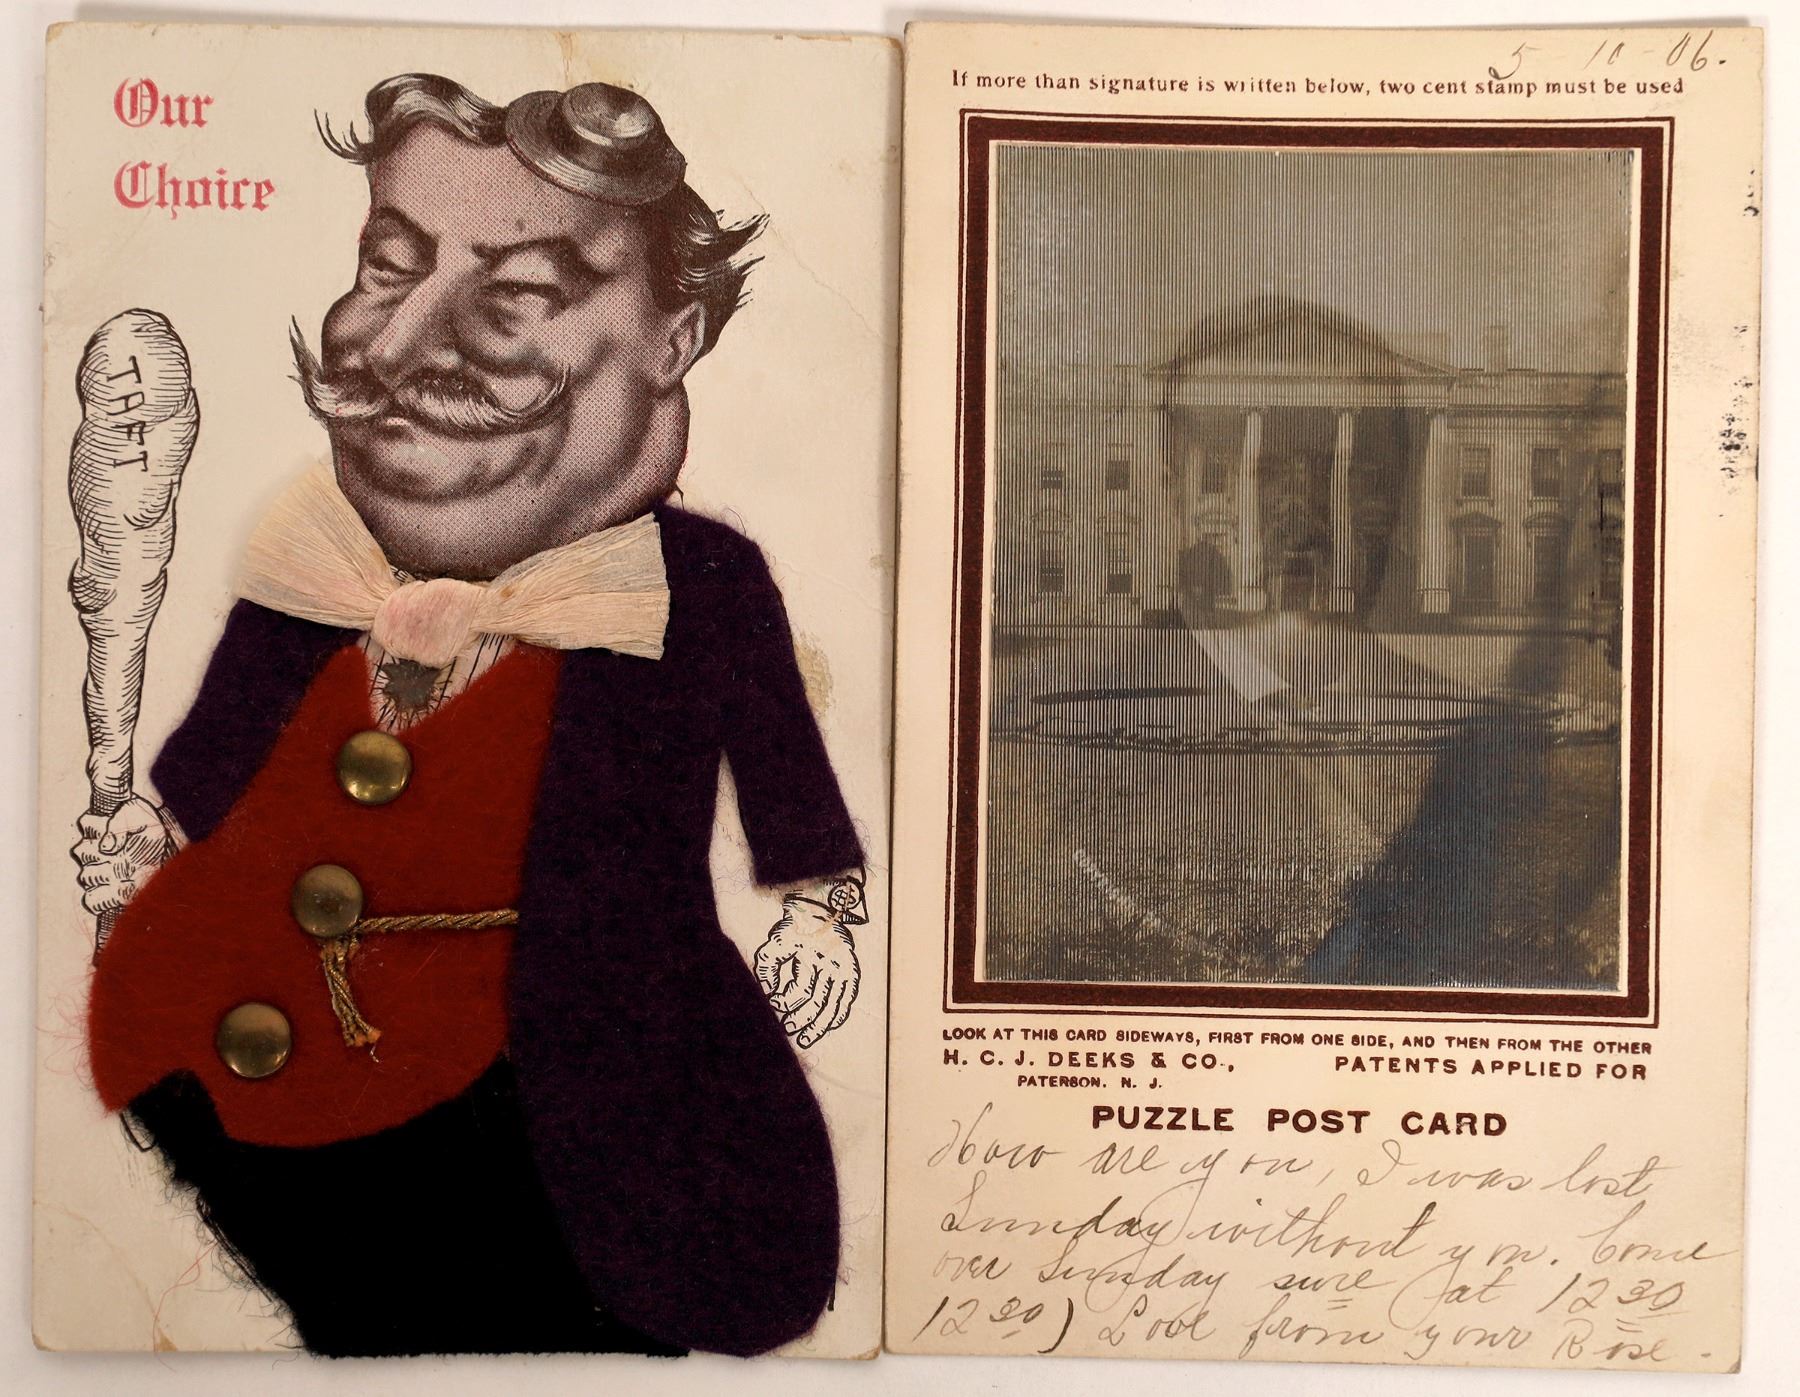 Our
Choice
TAFT
5-10-06.
If more than signature is written below, two cent stamp must be used
LOOK AT THIS CARD SIDEWAYS, FIRST FROM ONE SIDE, AND THEN FROM THE OTHER
H. C. J. DEEKS & CO., PATENTS APPLIED FOR
PATERSON. N. J.
PUZZLE POST CARD
How are you, I was lost
Sunday without you. Come
over Sunday sure at 12 30
12 30) Love from your Rose.